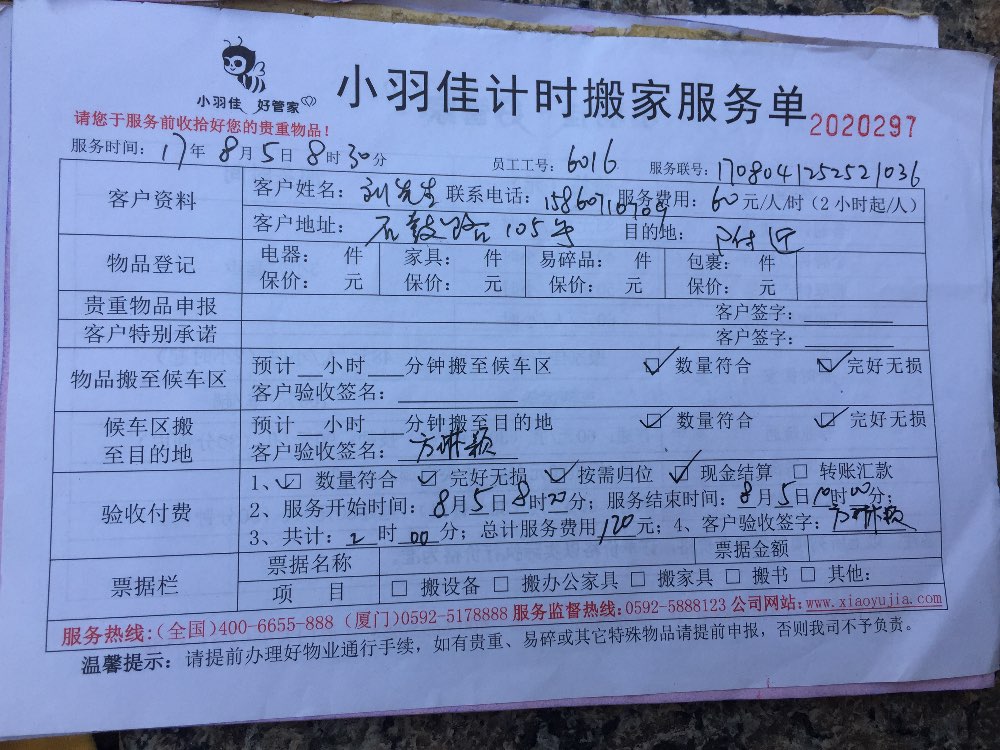 小羽佳 好管家
小羽佳计时搬家服务单
2020297
请您于服务前收拾好您的贵重物品!
服务时间: 17年 8月 5日 8时 30分 员工工号: 6016 服务联号: 1708041252521036
客户资料 客户姓名: 刘先生 联系电话: 15860710709 服务费用: 60元/人/时(2小时起/人)
客户地址: 石鼓路105号 目的地: 附近
物品登记 电器: 件 家具: 件 易碎品: 件 包裹: 件
保价: 元 保价: 元 保价: 元 保价: 元
贵重物品申报 客户签字:
客户特别承诺 客户签字:
物品搬至候车区 预计__小时___分钟搬至候车区 ☑ 数量符合 ☑ 完好无损
客户验收签名:
候车区搬至目的地 预计__小时___分钟搬至目的地 ☑ 数量符合 ☑ 完好无损
客户验收签名:
验收付费 1、☑ 数量符合 ☑ 完好无损 ☑ 按需归位 ☑ 现金结算 □ 转账汇款
2、服务开始时间: 8月5日8时20分; 服务结束时间: 8月5日10时00分;
3、共计: 2时00分; 总计服务费用120元; 4、客户验收签字:
票据栏 票据名称 票据金额
项 目 □ 搬设备 □ 搬办公家具 □ 搬家具 □ 搬书 □ 其他:
服务热线:(全国)400-6655-888 (厦门)0592-5178888 服务监督热线:0592-5888123 公司网站:www.xiaoyujia.com
温馨提示: 请提前办理好物业通行手续,如有贵重、易碎或其它特殊物品请提前申报,否则我司不予负责。